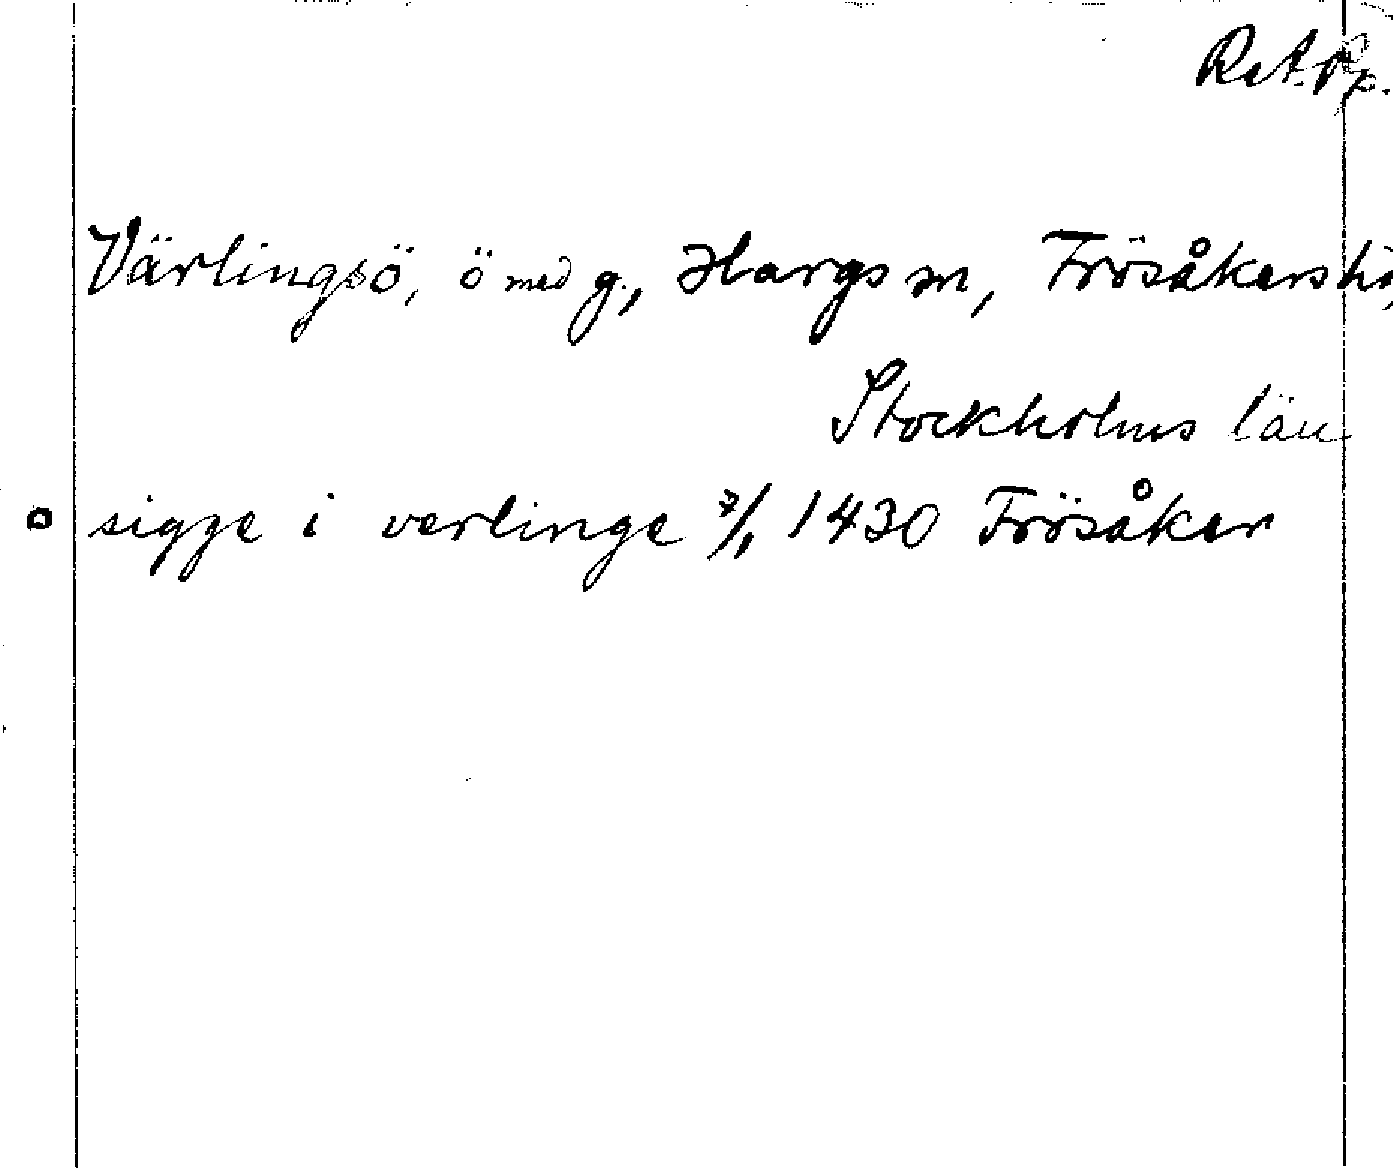 R.A. Pp.
Värlingsö, ö med g., Hargs sn, Frösåkers hd,
Stockholms län
sigge i verlinge 7/1 1430 Frösåker